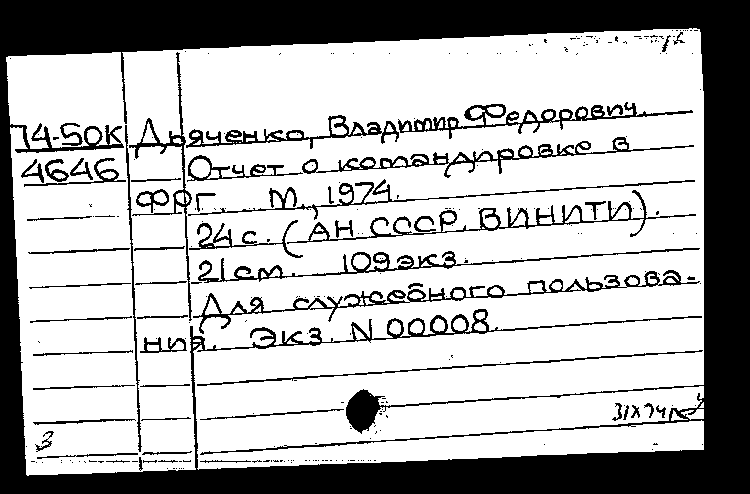 74-50К Дьяченко, Владимир Федорович.
4646 Отчет о командировке в
ФРГ. М., 1974.
24 с. (АН СССР. ВИНИТИ).
21 см. 109 экз.
Для служебного пользова-
ния. Экз. N 00008.
31X74
3